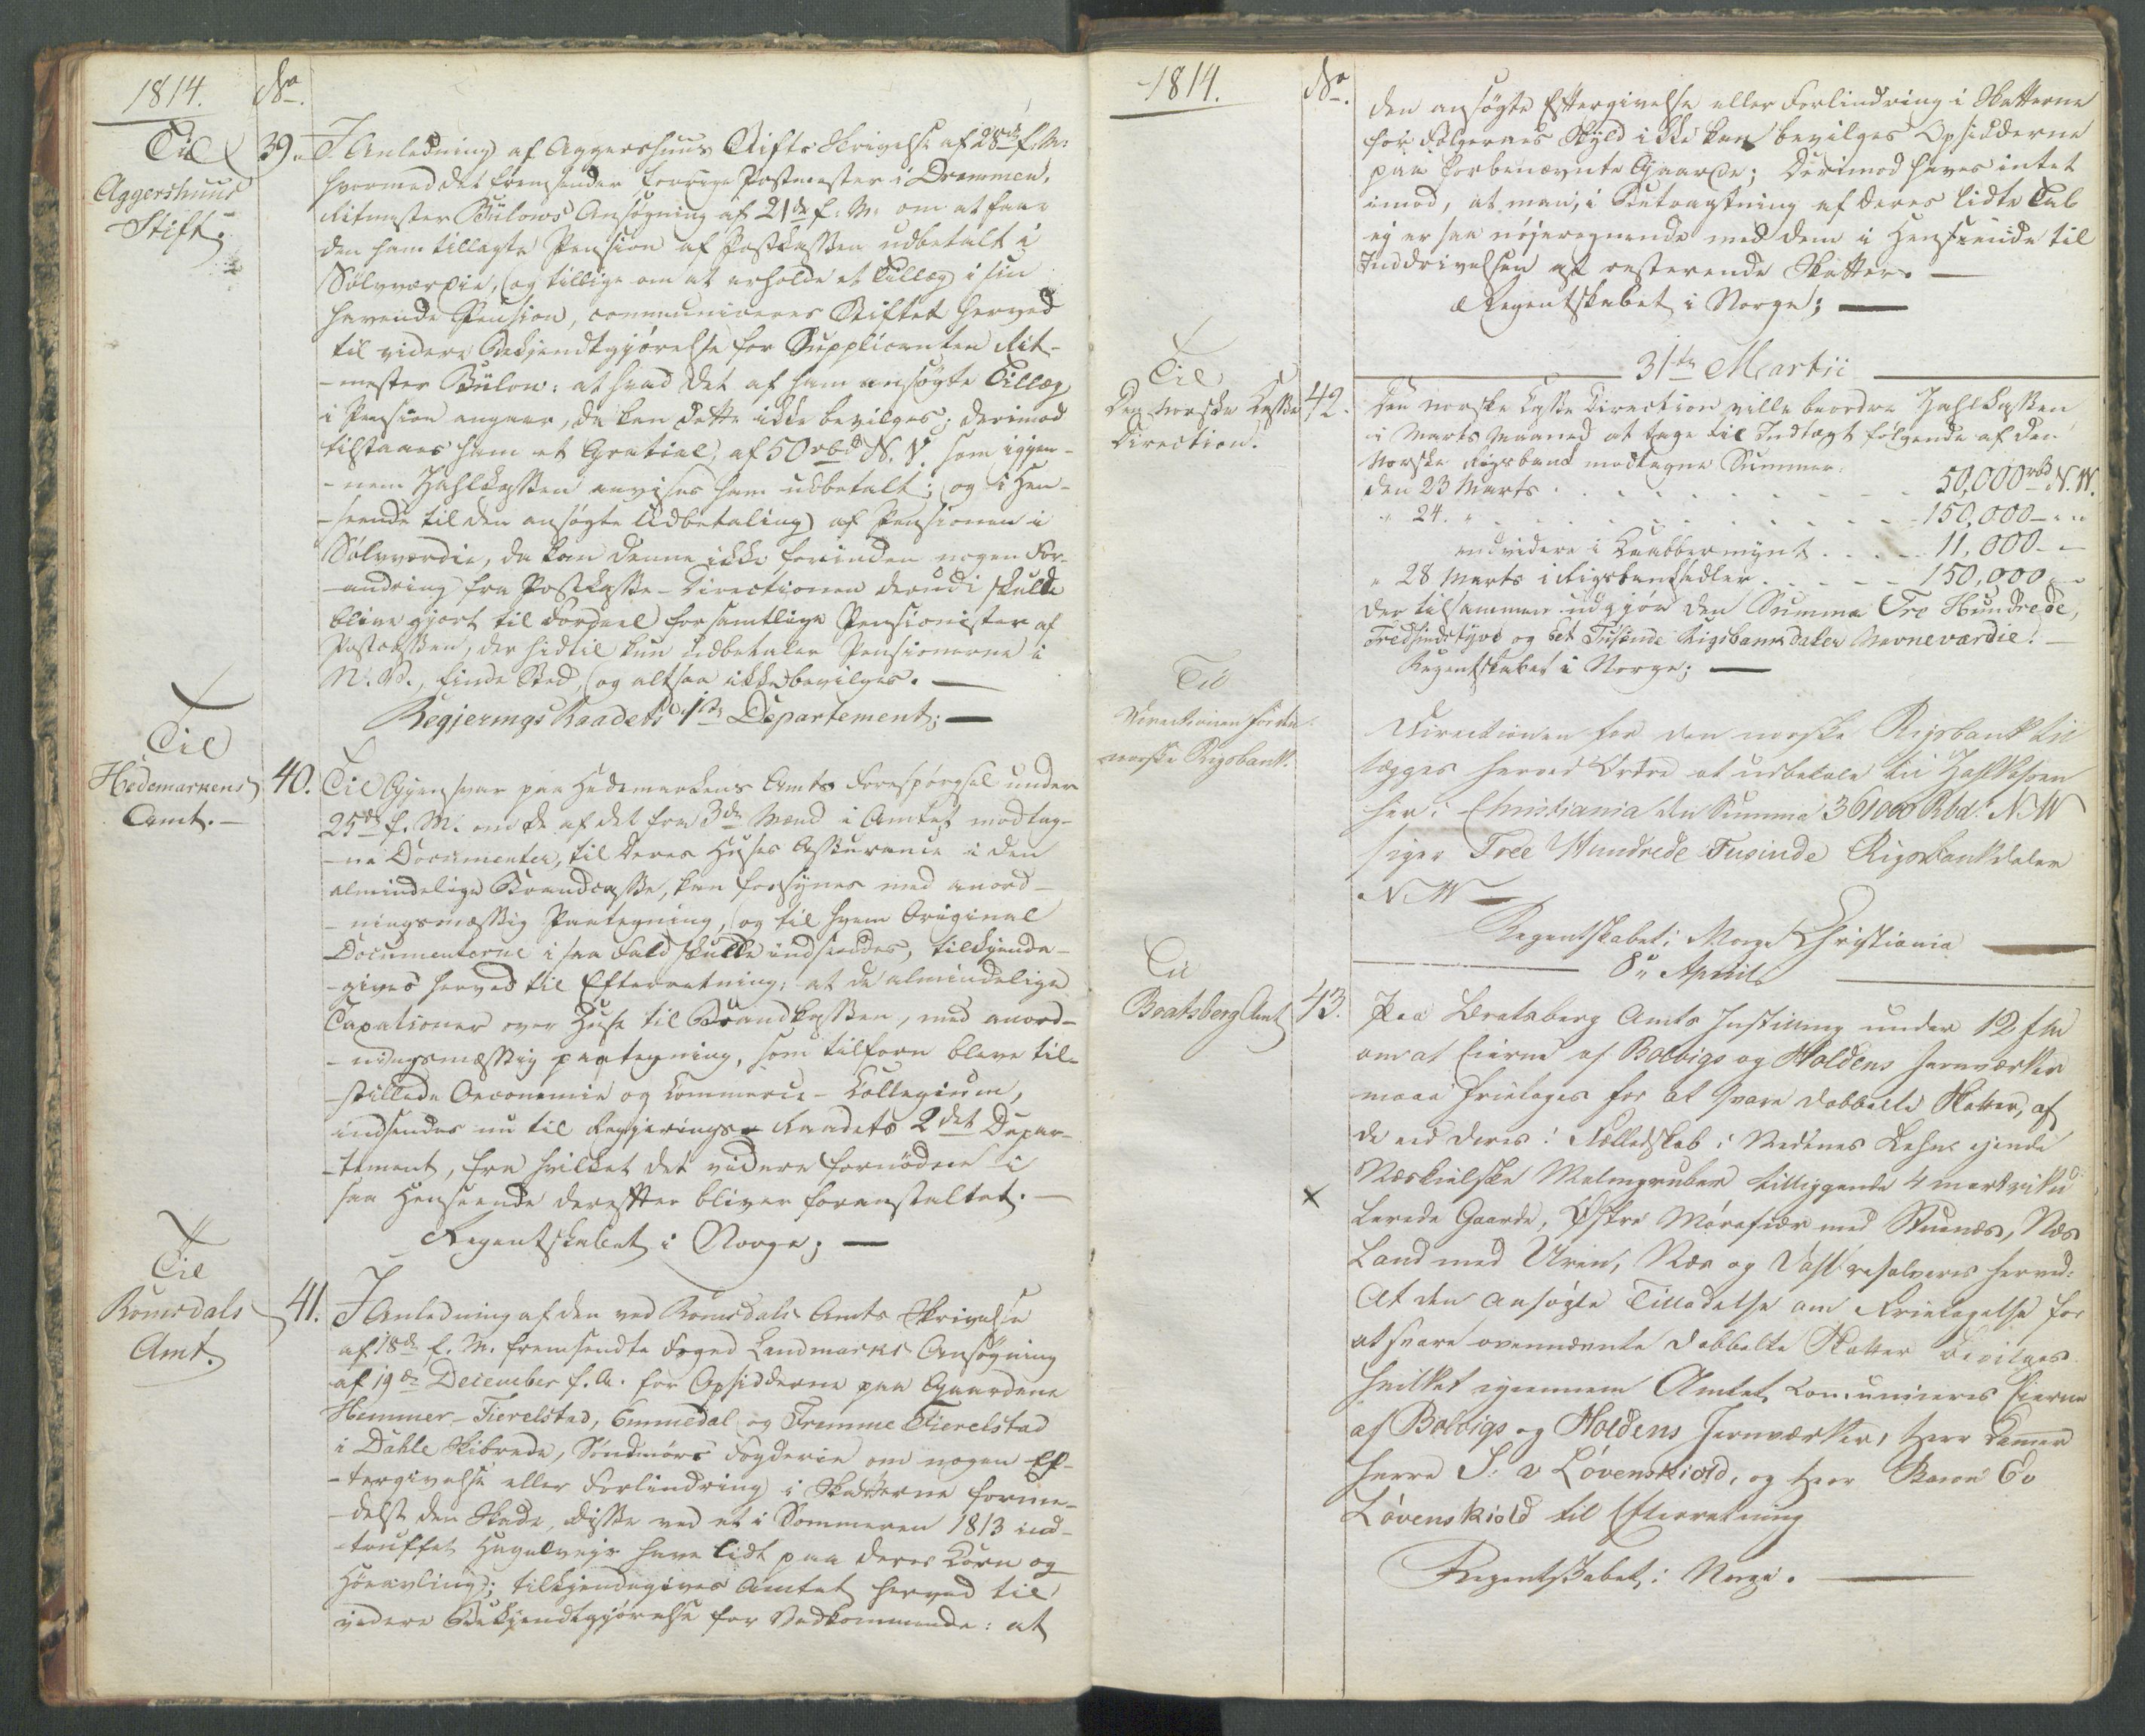 1814.
No.
Til
Aggershuus
Stift.
39.
I Anledning af Aggershuus Stifts Skrivelse af 28de f. M:
hvormed det fremsender forrige Postmester i Drammen,
Ritmester Bülows Ansøgning af 21de f. M. om at faae
den ham tillagte Pension af Postkassen udbetalt i
Sølvværdie, og tillige om at erholde et Tillæg i sin
havende Pension, communiceres Stiftet herved
til videre Bekjendtgjørelse for Supplicanten Rit-
-mester Bülow: at hvad det af ham ansøgte Tillæg
i Pension angaaer, da kan dette ikke bevilges; derimod
tilstaaes ham et Gratial af 50 rbd N. V. som igjen-
-nem Zahlkassen anvises ham udbetalt; og i Hen-
-seende til den ansøgte Udbetaling af Pensionen i
Sølvværdie, da kan denne ikke, forinden nogen For-
-andring fra Postkasse-Directionen derudi skulde
blive gjort til Fordeel for samtlige Pensionister af
Postcassen, der hidtil kun udbetaler Pensionerne i
N. V., finde Sted, og altsaa ikke bevilges. —
Regjerings Raadets 1ste Departement; —
Til
Hedemarkens
Amt. —
40.
Til Gjensvar paa Hedemarkens Amts Forespørgsel under
25de f. M. om de af det fra 3de Mænd i Amtet modtag-
-ne Documenter, til deres Huses Assurance i den
almindelige Brandcasse, kan forsynes med anord-
-ningsmæssig Paategning, og til hvem Original
Documenterne i saa Fald skulle indsendes, tilkjende-
-gives herved til Efterretning: at de almindelige
Taxationer over Huse til Brandkassen, med anord-
-ningsmæssig paategning, som tilforn bleve til-
-stillede Oeconomie og Commerce-Collegium,
indsendes nu til Regjerings-Raadets 2det Depar-
-tement, fra hvilket det videre fornødne i
saa Henseende derefter bliver foranstaltet. —
Regentskabet i Norge; —
Til
Romsdals
Amt.
41.
I Anledning af den ved Romsdals Amts Skrivelse
af 18de f. M. fremsendte Foged Landmarks Ansøgning
af 19de December f. A. for Opsidderne paa Gaardene
Hemmer-Fierelstad, Emmedal og Fremme Fierelstad
i Dahle Skibrede, Søndmørs Fogderie om nogen Ef-
-tergivelse eller Forlindring i Skatterne forme-
-delst den Skade, disse ved et i Sommeren 1813 ind-
-truffet Hagelveir have lidt paa deres Korn og
Høeavling; tilkjendegives Amtet herved til
videre Bekjendtgjørelse for Vedkommende: at
1814.
No.
den ansøgte Eftergivelse eller Forlindring i Skatterne
for Følgernes Skyld ikke kan bevilges Opsidderne
paa forbenævnte Gaarde; derimod haves intet
imod, at man, i Betragtning af deres lidte Tab
ej er saa nøjeregnende med dem i Henseende til
Inddrivelsen af resterende Skatter. —
Regentskabet i Norge; —
31te Martii
Til
Den norske Casse
Direction.
42.
Den norske Casse Direction ville beordre Zahlkassen
i Marts Maaned at tage til Indtægt følgende af den
Norske Rigsbank modtagne Summer:
den 23 Marts . . . . . 50,000 rbd N. W.
" 24. " . . . . . 150,000 — " "
endvidere i Kaabbermynt . . . . 11,000 — "
" 28 Marts i Rigsbanksedler . . . . 150,000 — "
der tilsammen udgjør den Summa Tre Hundrede,
Tredsindstyve og Eet Tusinde Rigsbankdaler Navneværdie. —
Regentskabet i Norge; —
Til
Directionen for den
norske Rigsbank.
Directionen for den norske Rigsbank til
lægges herved Ordre at udbetale til Zahlkassen
her i Christiania den Summa 361000 Rbd. N W
siger Tree Hundrede Tusinde Rigsbankdaler
N W —
Regentskabet i Norge Christiania —
8de April
Til
Bratsberg Amt
43.
Paa Bratsberg Amts Instilling under 12 f M
om at Eierne af Bolvigs og Holdens Jernværker
maae fritages for at svare dobbelte Skatter, af
de ved deres i Fælledskab i Nedenes Lehn ejende
Næskielske Malmgruber tilliggende 4 matriku
lerede Gaarde, Østre Mørefiær med Stuenæs, Næs
Land med Uren, Næs og Dahl resolveres herved:
At den ansøgte Tilladelse om Fritagelse for
at svare ovennævnte dobbelte Skatter bevilges
hvilket igiennem Amtet Communiceres Eierne
af Bolvigs og Holdens Jernværker, Herr Kammer
herre S. v Løvenskiold, og Herr Baron E v
Løvenskiold til Efterretning
Regentskabet i Norge. —